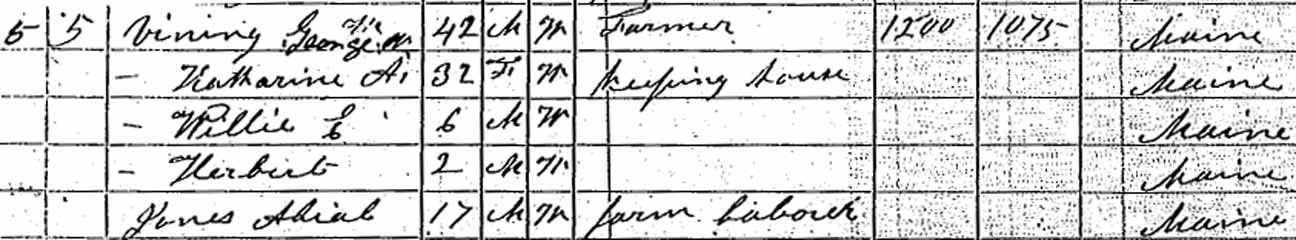 5 5 Vining George W 42 M W Farmer 1200 1075 Maine
— Katharine A. 32 F W Keeping house Maine
— Willie E 6 M W Maine
— Herbert 2 M W Maine
Jones Abial 17 M W farm Laborer Maine